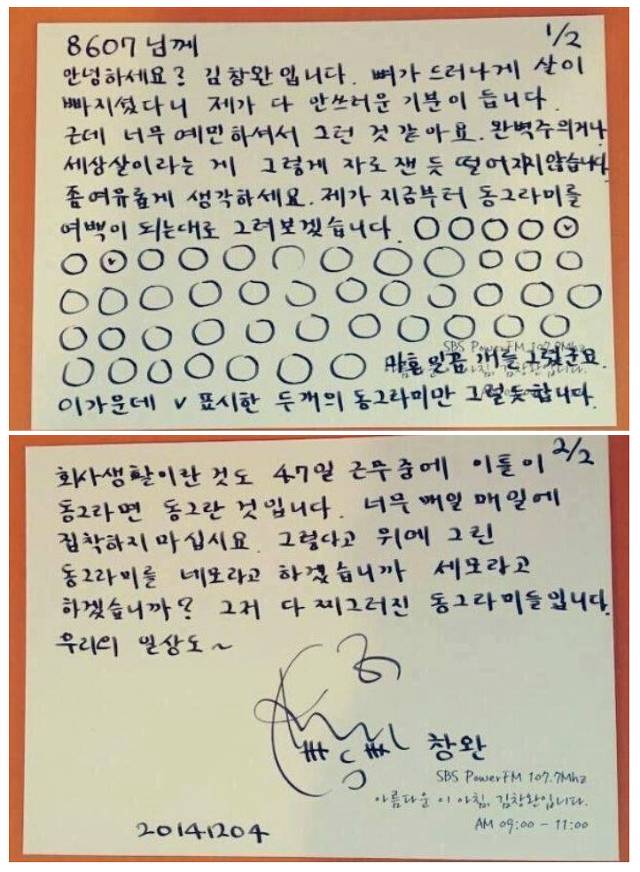 8607님께
1/2
안녕하세요? 김창완입니다. 뼈가 드러나게 살이
빠지셨다니 제가 다 안쓰러운 기분이 듭니다.
근데 너무 예민하셔서 그런 것 같아요. 완벽주의거나
세상살이라는 게 그렇게 자로 잰 듯 떨어지지 않습니다.
좀 여유롭게 생각하세요. 제가 지금부터 동그라미를
여백이 되는대로 그려보겠습니다.
SBS PowerFM 107.7Mhz
마흔 일곱 개를 그렸군요.
이 아침, 김창완입니다.
이가운데 v 표시한 두개의 동그라미만 그럴듯합니다.
2/2
회사생활이란 것도 47일 근무중에 이틀이
동그라면 동그란 것입니다. 너무 매일 매일에
집착하지 마십시요. 그렇다고 위에 그린
동그라미를 네모라고 하겠습니까 세모라고
하겠습니까? 그저 다 찌그러진 동그라미들입니다.
우리의 일상도~
창완
SBS PowerFM 107.7Mhz
아름다운 이 아침, 김창완입니다.
AM 09:00 - 11:00
20141204